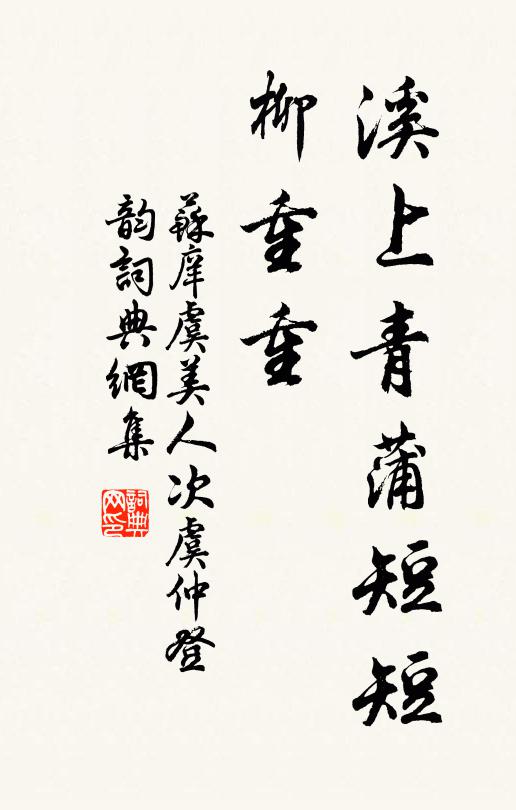 溪上青蒲短短
柳重重
蘇庠虞美人次虞仲登
韵詞典網集
詞典网印